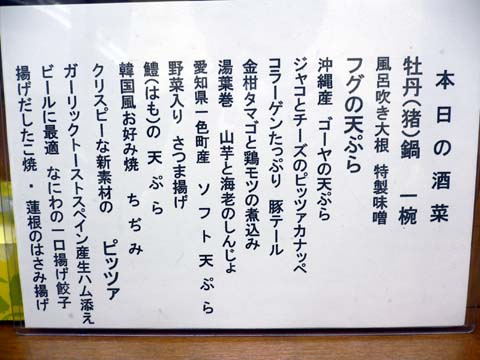 本日の酒菜
牡丹(猪)鍋 一椀
風呂吹き大根 特製味噌
フグの天ぷら
沖縄産 ゴーヤの天ぷら
ジャコとチーズのピッツァカナッペ
コラーゲンたっぷり 豚テール
金柑タマゴと鶏モツの煮込み
湯葉巻 山芋と海老のしんじょ
愛知県一色町産 ソフト天ぷら
野菜入り さつま揚げ
鱧(はも)の天ぷら
韓国風お好み焼 ちぢみ
クリスピーな新素材の ピッツァ
ガーリックトーストスペイン産生ハム添え
ビールに最適 なにわの一口揚げ餃子
揚げだしたこ焼・蓮根のはさみ揚げ